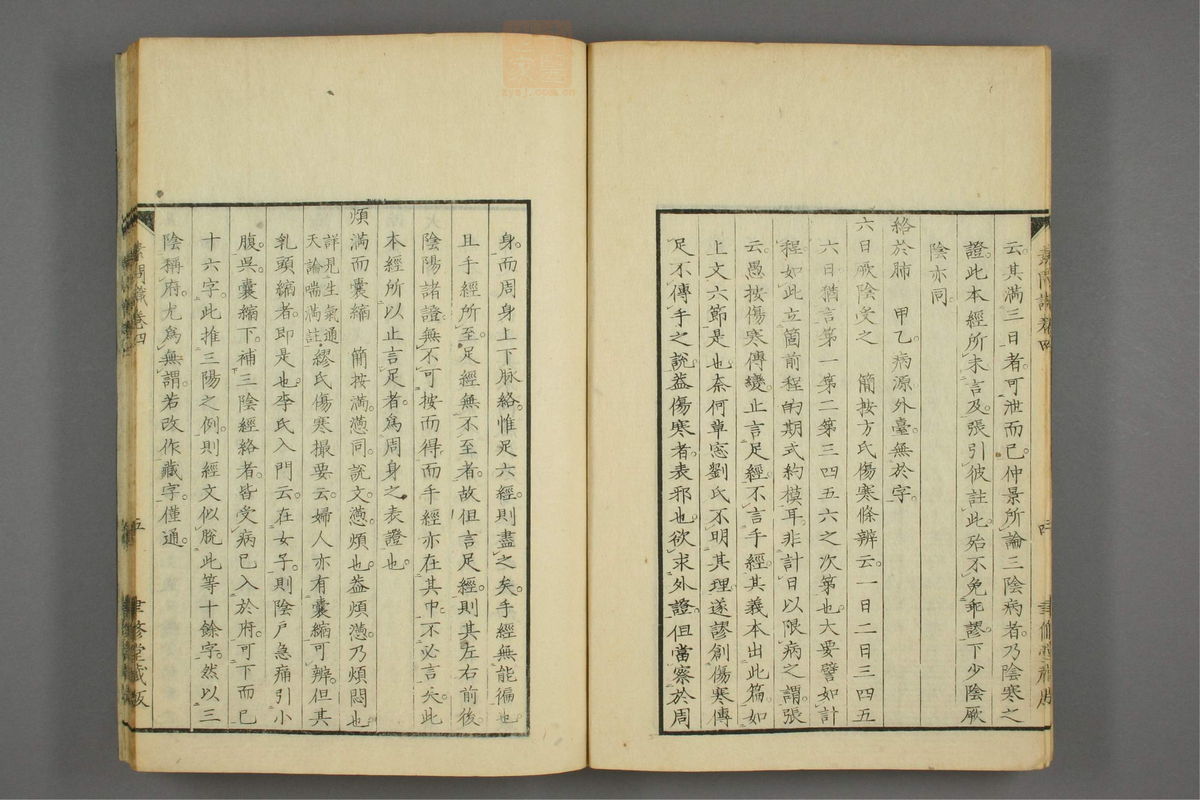 云其滿三日者可泄而已仲景所論三陰病者乃陰寒之
證此本經所未言及張引彼註此殆不免乖謬下少陰厥
陰亦同
絡於肺　甲乙病源外臺無於字
六日厥陰受之　簡按方氏傷寒條辨云一日二日三四五
六日猶言第一第二第三四五六之次第也大要譬如計
程如此立箇前程的期式約模耳非計日以限病之謂張
云愚按傷寒傳變止言足經不言手經其義本出此篇如
上文六節是也柰何草窓劉氏不明其理遂謬創傷寒傳
足不傳手之說蓋傷寒者表邪也欲求外證但當察於周
身而周身上下脉絡惟足六經則盡之矣手經無能徧也
且手經所至足經無不至者故但言足經則其左右前後
陰陽諸證無不可按而得而手經亦在其中不必言矣此
本經所以止言足者爲周身之表證也
煩滿而囊縮　簡按滿懣同說文懣煩也蓋煩懣乃煩悶也
詳見生氣通
天論喘滿註
繆氏傷寒撮要云婦人亦有囊縮可辨但其
乳頭縮者即是也李氏入門云在女子則陰戶急痛引小
腹吳囊縮下補三陰經絡者皆受病已入於府可下而已
十六字此推三陽之例則經文似脫此等十餘字然以三
陰稱府尤爲無謂若改作藏字僅通
素問識卷四
五
聿修堂藏版